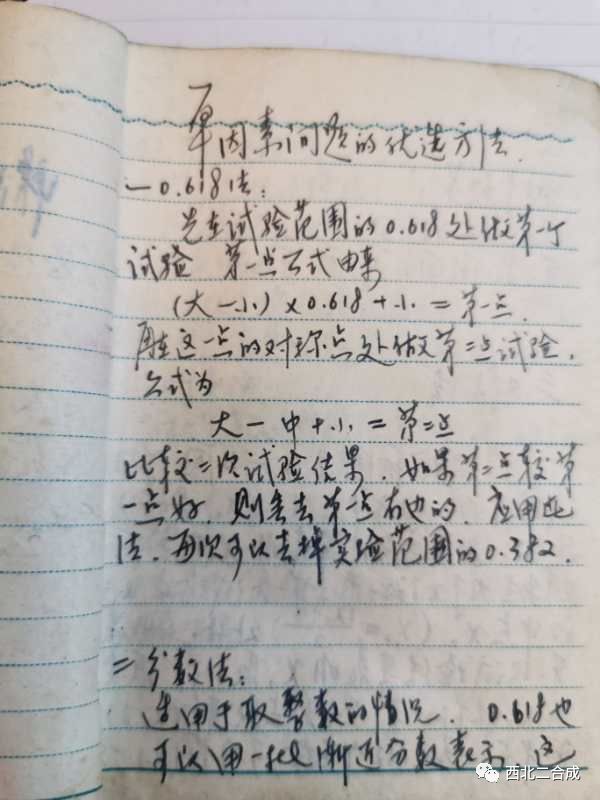 单因素问题的优选方法.
一 0.618法:
先在试验范围的0.618处做第一个
试验 第一点公式由来
(大一小)×0.618+小=第一点.
再在这一点的对称点处做第二点试验.
公式为
大一中+小=第二点
比较二次试验结果. 如果第二点较第
一点好. 则丢去第一点右边的. 应用此
法. 每次可以去掉实验范围的0.382.
二 分数法:
适用于取整数的情况. 0.618也
可以用一批渐近分数表示. 这
西北二合成